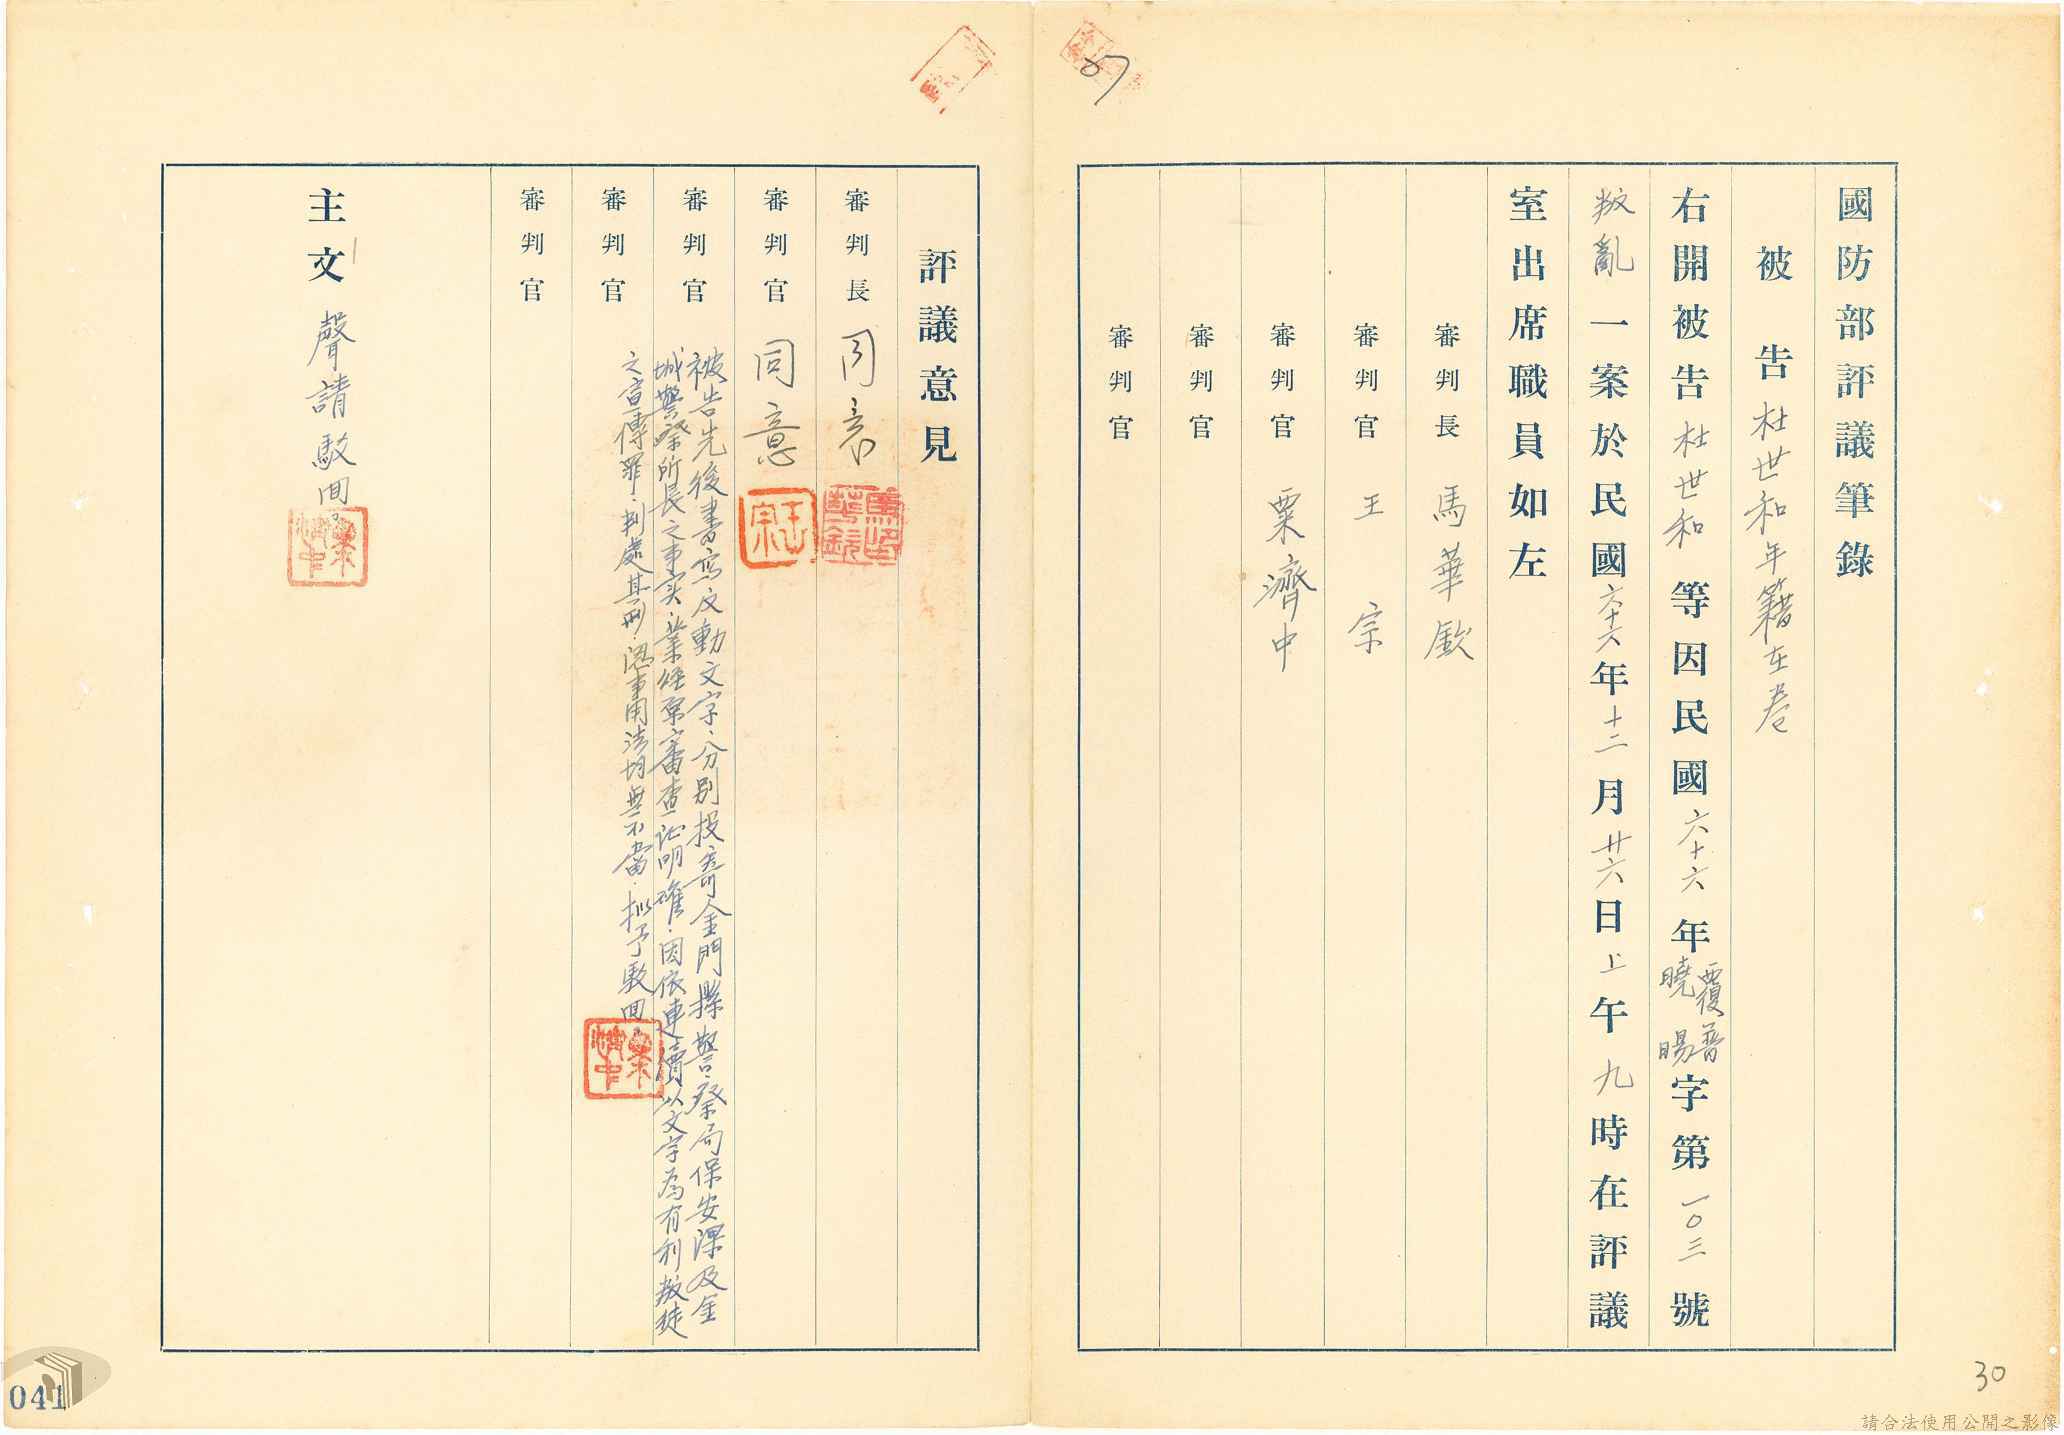 國防部評議筆錄
被告 杜世和 年籍在卷
右開被告 杜世和 等因民國六十六年覆普曉暘字第一〇三號
叛亂一案於民國六十六年十二月廿六日上午九時在評議
室出席職員如左
審判長 馬華欽
審判官 王宗
審判官 粟濟中
審判官
審判官
評議意見
審判長 同意
審判官 同意
審判官 被告先後書寫反動文字、分別投寄金門縣警察局保安課及金
城警察所長之事实、業經原審查證明確、因依連續以文字為有利叛徒
之宣傳罪、判處其刑、認事用法均無不當、擬予駁回。
審判官
審判官
主文 聲請駁回。
粟濟中
041
30
請合法使用公開之影像